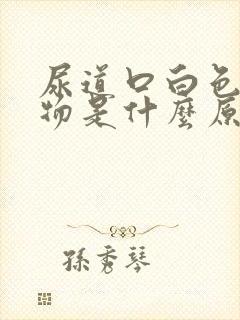 尿道口白色
物是什麼原
孫秀琴